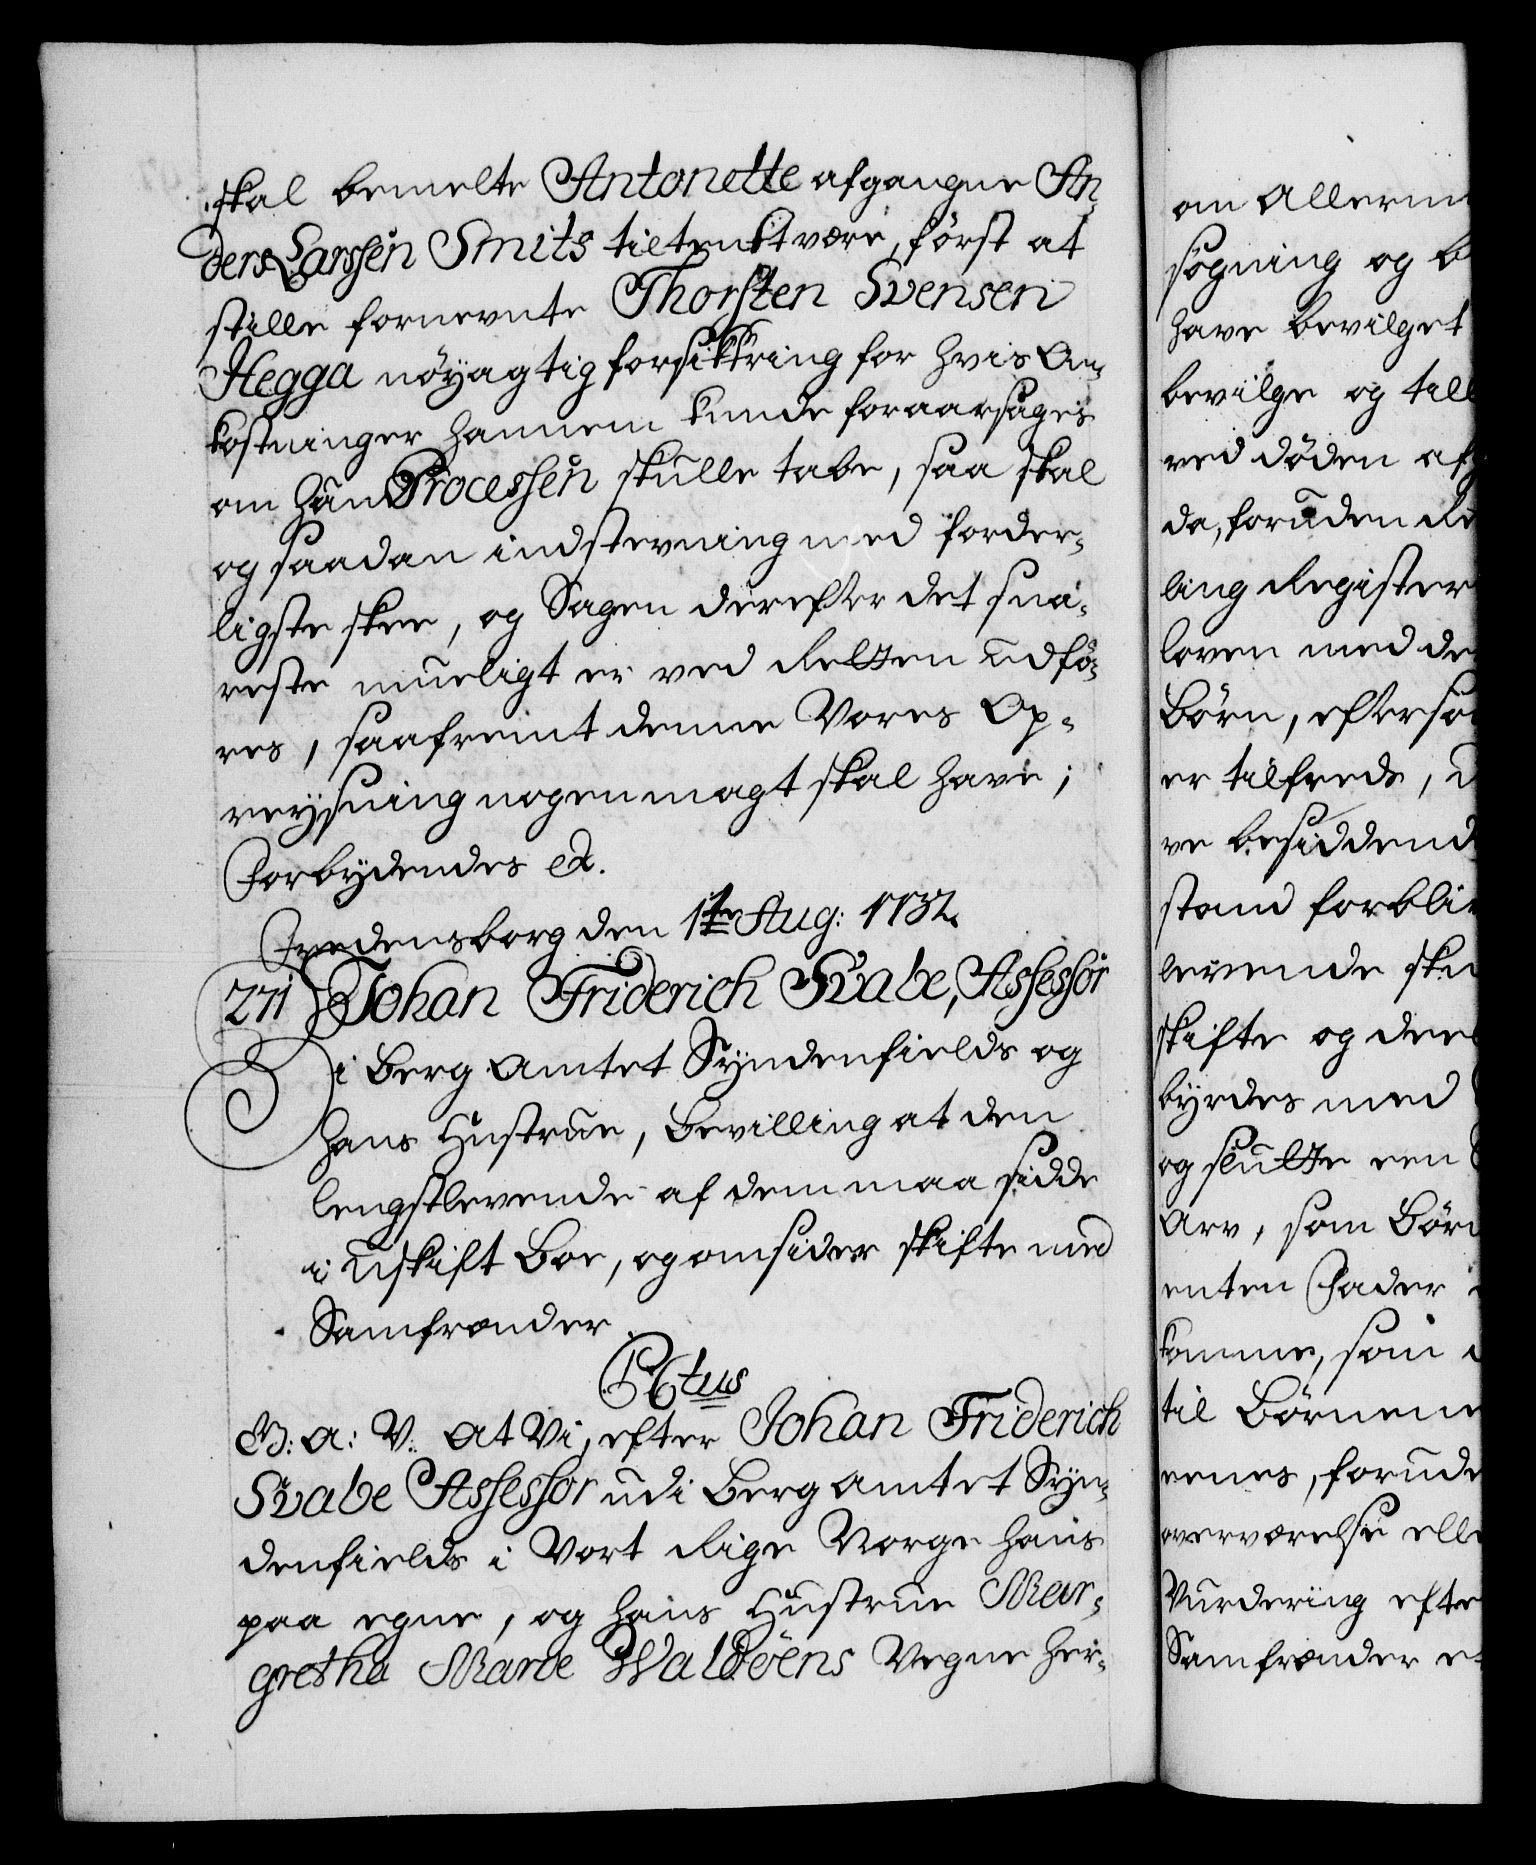 skal bemelte Antonette afgangne An-
ders Larssen Smits tiltenkt være, först at
stille fornevnte Thorsten Svensen
Hegga nöyagtig forsikkring for hvis Om-
kostninger hannem kunde foraarsages
om hand Processen skulle tabe, saa skal
og saadan indstevning med forder-
ligste skee, og Sagen derefter det sna-
reste mueligt er ved Retten udfö-
res, saafremt denne Vores Op-
reysning nogen magt skal have;
Forbydendes etc.
Fredensborg den 1te Aug: 1732.
271 Johan Friderich Svabe, Assessor
i Berg Amtet Syndenfields og
hans Hustrue, Bevilling at den
lengstlevende af dem maa sidde
i uskift Boe, og omsider skifte med
Samfrænder.
C6tus
G: A: V. At Vi, efter Johan Friderich
Svabe Assessor udi Berg Amtet Syn-
denfields i Vort Rige Norge hans
paa egne, og hans Hustrue Mar-
gretha Marie Waldöens Vegne her-
om Allerun
sögning og b
have bevilget
bevilge og till
ved döden af
da, foruden Re
ling Register
loven med de
Börn, eftersom
er tilfreds, u
ve besiddend
stand forbliv
levende sku
skifte og dere
byrdes med
og slutte een
Arv, som Börn
enten Fader
komme, som
til Börnene
eenes, forude
overværelse elle
Vurdering efte
Samfrænder e